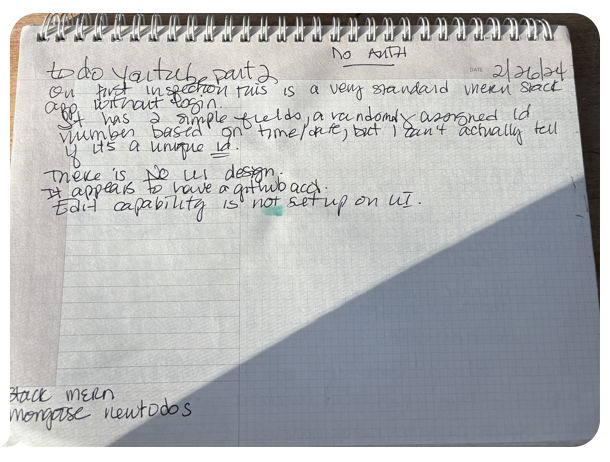 No AUTH
DATE 2/26/24
to do youtube part 2
On first inspection this is a very standard mern stack
app without login.
It has 2 simple fields, a randomly assigned id
number based on time/date, but I can't actually tell
if its a unique id.
There is No UI design.
It appears to have a github acct.
Edit capability is not set up on UI.
Stack mern
mongoose newtodos